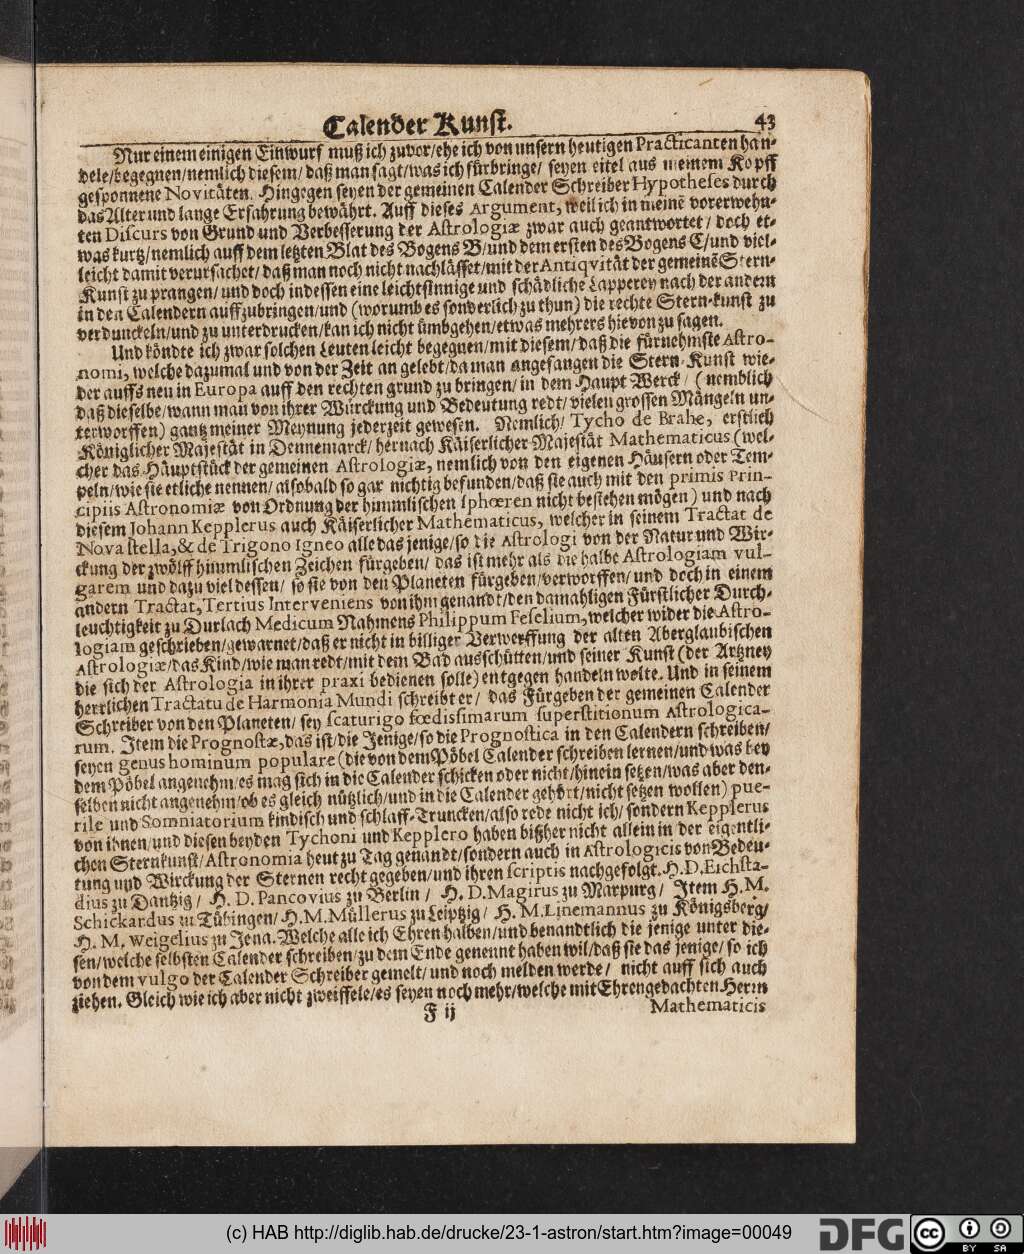 Calender Kunst. 43
Nur einem einigen Einwurf muß ich zuvor/ehe ich von unsern heutigen Practicanten han-
dele/begegnen/nemlich diesem/daß man sagt/was ich fürbringe/ seyen eitel aus meinem Kopff
gesponnene Novitäten. Hingegen seyen der gemeinen Calender Schreiber Hypotheses durch
das Alter und lange Erfahrung bewährt. Auff dieses Argument, weil ich in meinẽ vorerwehn-
ten Discurs von Grund und Verbesserung der Astrologiæ zwar auch geantwortet/ doch et-
was kurtz/nemlich auff dem letzten Blat des Bogens B/und dem ersten des Bogens C/und viel-
leicht damit verursachet/daß man noch nicht nachlässet/mit der Antiqvität der gemeinẽ Stern-
Kunst zu prangen/und doch indessen eine leichtsinnige und schädliche Lapperey nach der andern
in den Calendern auffzubringen/und (worumb es sonderlich zu thun) die rechte Stern-kunst zu
verdunckeln/und zu unterdrucken/kan ich nicht ümbgehen/etwas mehrers hievon zu sagen.
Und köndte ich zwar solchen Leuten leicht begegnen/mit diesem/daß die fürnehmste Astro-
nomi, welche dazumal und von der Zeit an gelebt/da man angefangen die Stern-Kunst wie-
der auffs neu in Europa auff den rechten grund zu bringen/ in dem Haupt Werck/ (nemblich
daß dieselbe/wann man von ihrer Würckung und Bedeutung redt/vielen grossen Mängeln un-
terworffen) gantz meiner Meynung jederzeit gewesen. Nemlich/ Tycho de Brahe, erstlich
Königlicher Majestät in Dennemarck/hernach Käiserlicher Majestät Mathematicus (wel-
cher das Häuptstück der gemeinen Astrologiæ, nemlich von den eigenen Häusern oder Tem-
peln/wie sie etliche nennen/alsobald so gar nichtig befunden/daß sie auch mit den primis Prin-
cipiis Astronomiæ von Ordnung der himmlischen sphœren nicht bestehen mögen) und nach
diesem Johann Kepplerus auch Käiserlicher Mathematicus, welcher in seinem Tractat de
Nova stella, & de Trigono Igneo alle das jenige/so die Astrologi von der Natur und Wir-
ckung der zwölff himmlischen Zeichen fürgeben/ das ist mehr als die halbe Astrologiam vul-
garem und dazu viel dessen/ so sie von den Planeten fürgeben/verworffen/und doch in einem
andern Tractat, Tertius Interveniens von ihm genandt/den damahligen Fürstlicher Durch-
leuchtigkeit zu Durlach Medicum Nahmens Philippum Feselium, welcher wider die Astro-
logiam geschrieben/gewarnet/daß er nicht in billiger Verwerffung der alten Aberglaubischen
Astrologiæ/das Kind/wie man redt/mit dem Bad ausschütten/und seiner Kunst (der Artzney
die sich der Astrologia in ihrer praxi bedienen solle) entgegen handeln wolte. Und in seinem
herrlichen Tractatu de Harmonia Mundi schreibt er/ das Fürgeben der gemeinen Calender
Schreiber von den Planeten/ sey scaturigo fœdissimarum superstitionum Astrologica-
rum. Item die Prognostæ, das ist/die Jenige/so die Prognostica in den Calendern schreiben/
seyen genus hominum populare (die von dem Pöbel Calender schreiben lernen/und was bey
dem Pöbel angenehm/es mag sich in die Calender schicken oder nicht/hinein setzen/was aber den-
selben nicht angenehm/ob es gleich nützlich/und in die Calender gehört/nicht setzen wollen) pue-
rile und Somniatorium kindisch und schlaff-Truncken/also rede nicht ich/sondern Kepplerus
von ihnen/und diesen beyden Tychoni und Kepplero haben bißher nicht allein in der eigentli-
chen Sternkunst/Astronomia heut zu Tag genandt/sondern auch in Astrologicis von Bedeu-
tung und Wirckung der Sternen recht gegeben/und ihren scriptis nachgefolgt. H. D. Eichsta-
dius zu Dantzig/ H. D. Pancovius zu Berlin/ H. D. Magirus zu Marpurg/ Item H. M.
Schickardus zu Tübingen/H. M. Müllerus zu Leiptzig/ H. M. Linemannus zu Königsberg/
H. M. Weigelius zu Jena. Welche alle ich Ehren halben/und benandtlich die jenige unter die-
sen/welche selbsten Calender schreiben/zu dem Ende genennt haben wil/daß sie das jenige/so ich
von dem vulgo der Calender Schreiber gemelt/und noch melden werde/ nicht auff sich auch
ziehen. Gleich wie ich aber nicht zweiffele/es seyen noch mehr/welche mit Ehrengedachten Herrn
F ij Mathematicis
(c) HAB http://diglib.hab.de/drucke/23-1-astron/start.htm?image=00049
DFG
cc BY SA